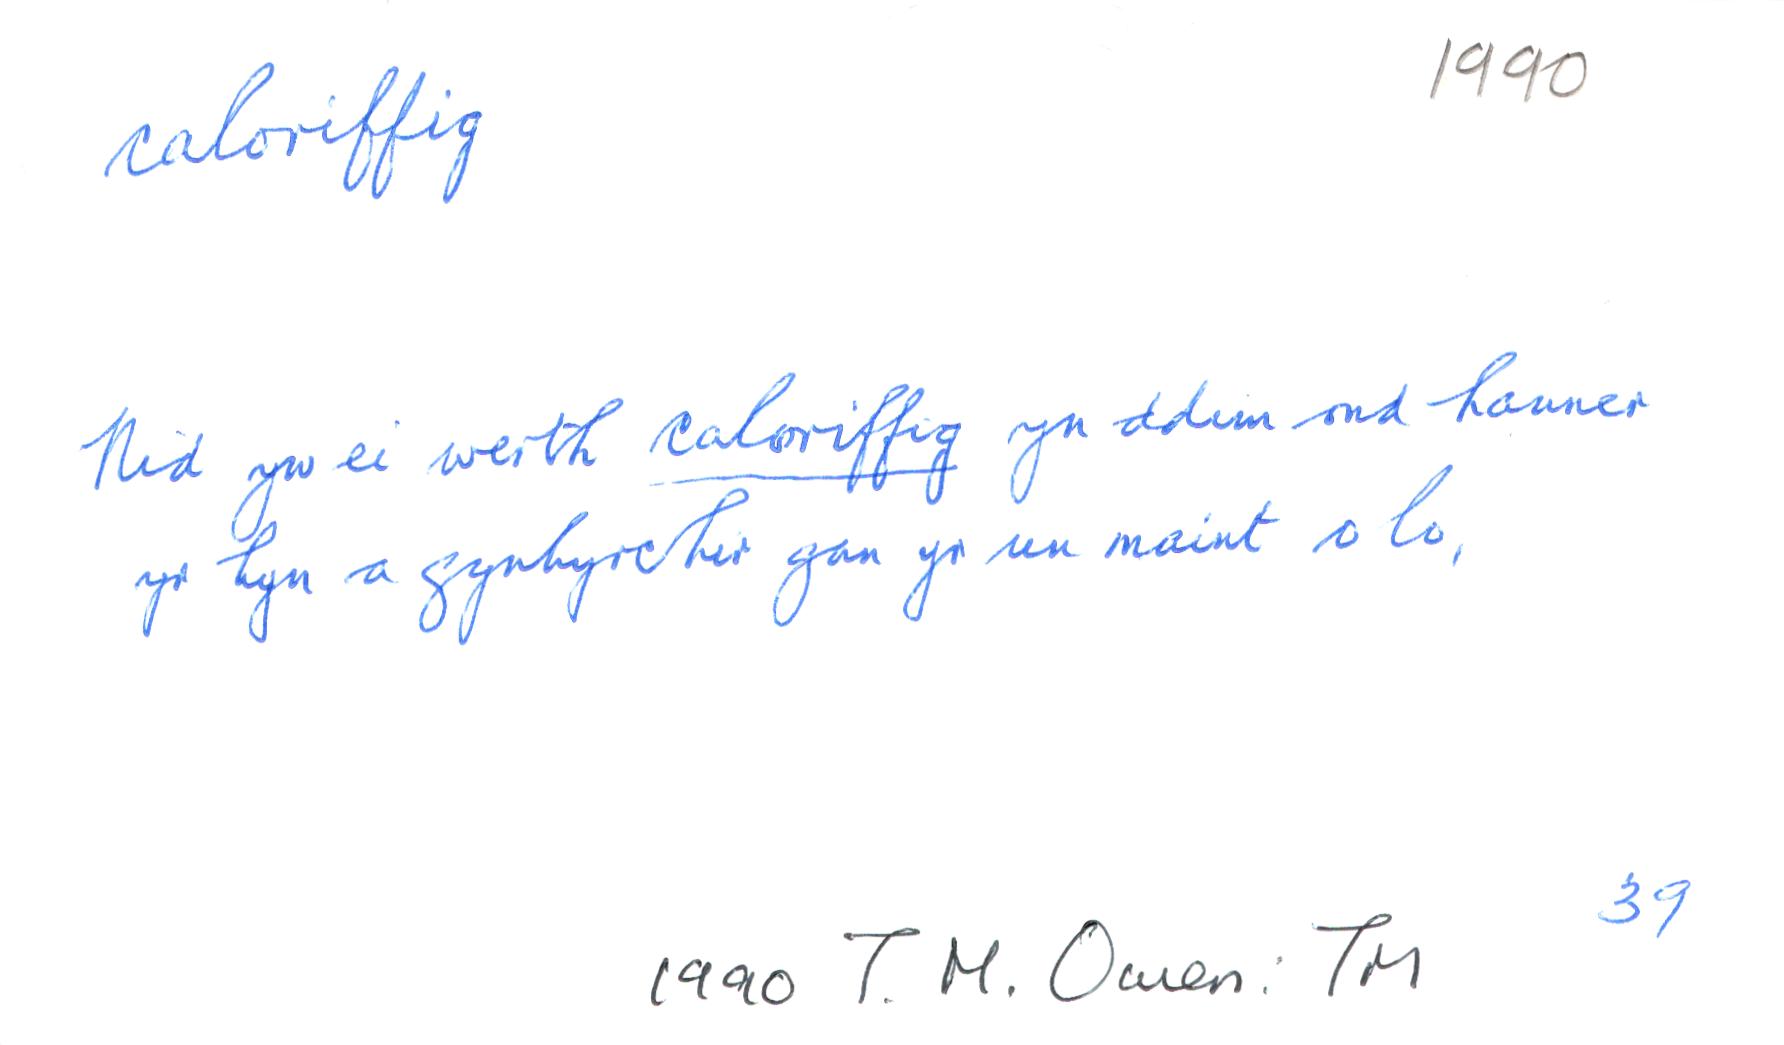 1990
caloriffig
Nid yw ei werth caloriffig yn ddim ond hanner
yr hyn a gynhyrchir gan yr un maint o lo,
39
1990 T. M. Owen: TM